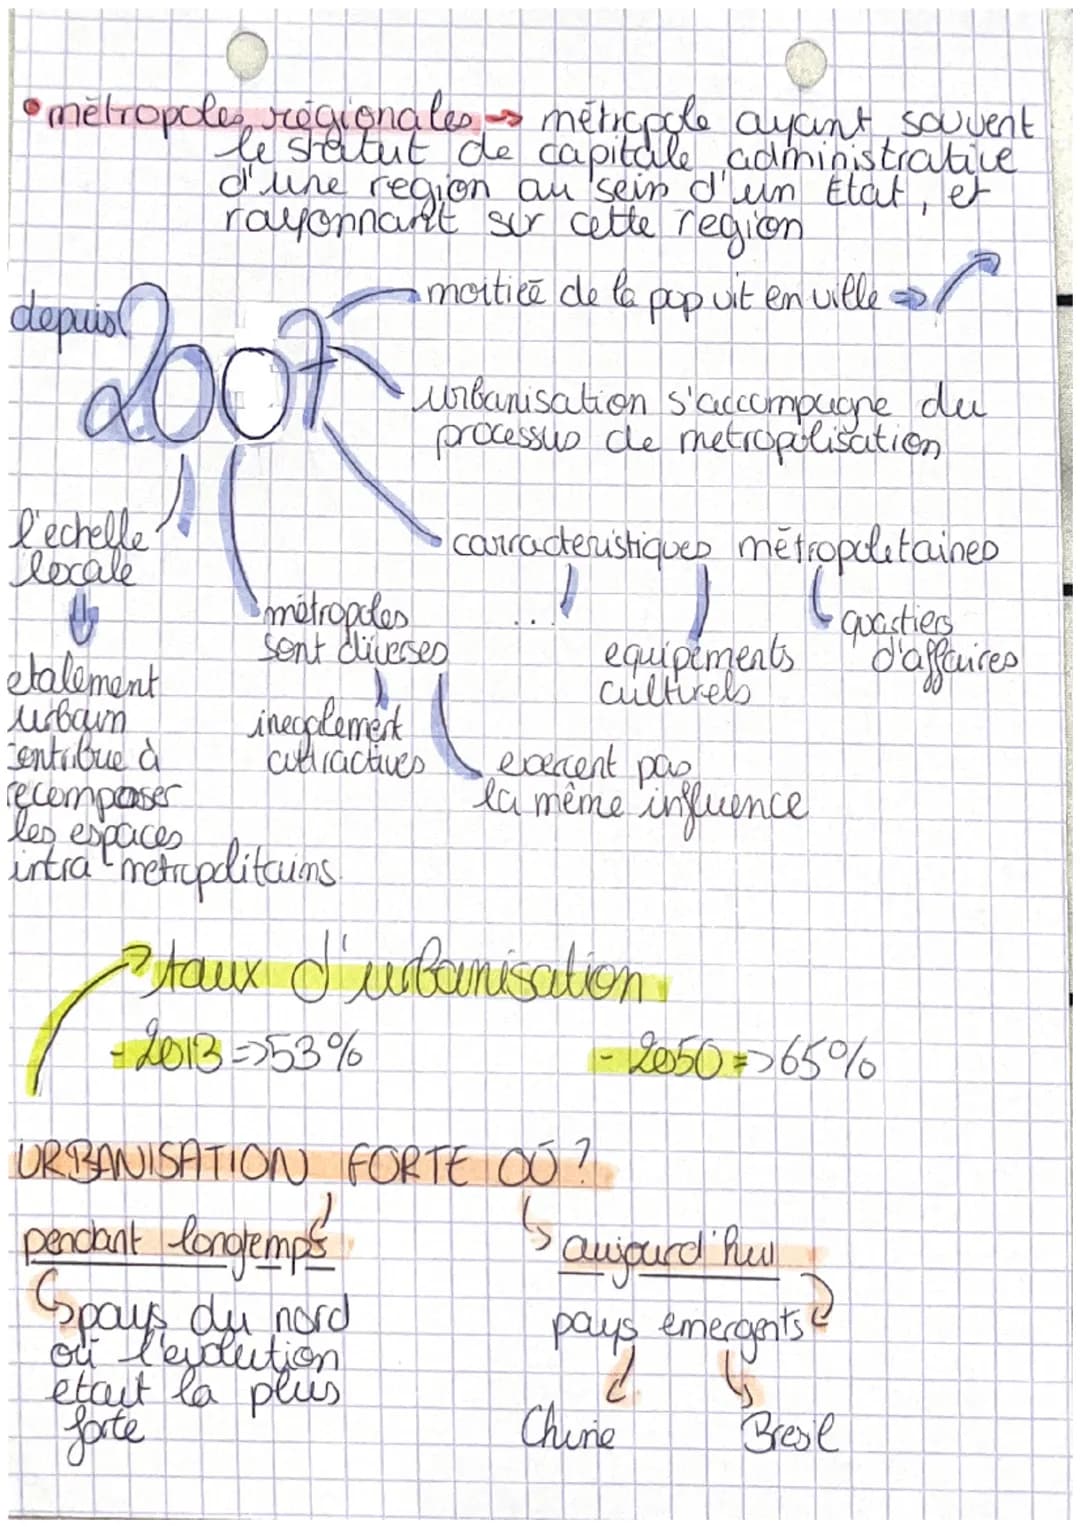 • métropoles régionales → métropole ayant souvent
le statut de capitale administrative
d'une region au sein d'un Etat, et
rayonnant sur cette region
depuis 2007
moitieé de la pop vit en ville ⇒ ↗
urbanisation s'accompagne du
processus de metropolisation
carracteristiques métropoletaines
...
equipements
culturels
quartiers
d'affaires
métropoles
sont diverses
inegalement
attractives
exercent pas
la même influence
l'echelle
locale
etalement
urbain
contribue à
recomposer
les espaces
intra-metropolitains.
taux d'urbanisation
- 2013 => 53%
- 2050 => 65%
URBANISATION FORTE OÙ ?
pendant longtemps
pays du nord
où l'evolution
etait la plus
forte
aujourd'hui
pays emergents
Chine
Bresil